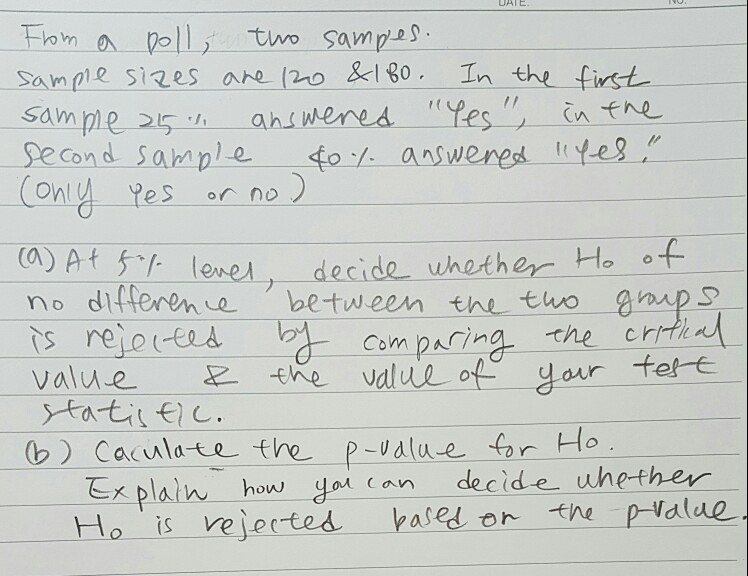 DATE. NO.
From a poll, two sampes.
Sample sizes are 120 & 180. In the first
sample 25% answered "Yes", in the
second sample 40% answered "yes."
(only yes or no)
(a) At 5% level, decide whether Ho of
no difference between the two groups
is rejected by comparing the critical
value & the value of your test
statistic.
(b) Caculate the p-value for Ho.
Explain how you can decide whether
Ho is rejected based on the p-value.